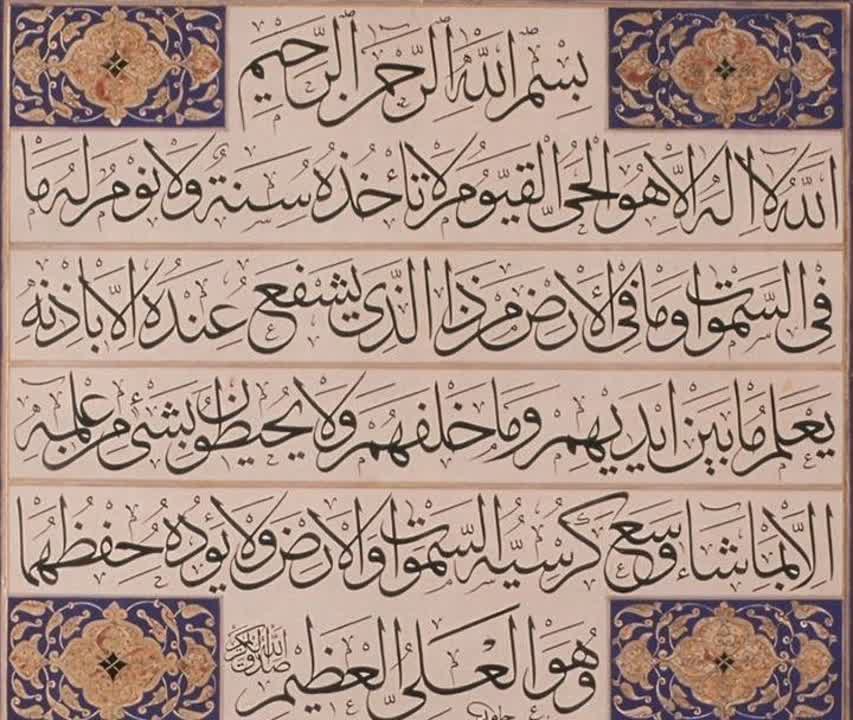 بِسْمِ اللهِ الرَّحْمنِ الرَّحِيمِ
اَللهُ لَا اِلهَ اِلَّا هُوَ الْحَىُّ الْقَيُّومُ لَا تَأْخُذُهُ سِنَةٌ وَلَا نَوْمٌ لَهُ مَا
فِى السَّموَاتِ وَمَا فِى الْأَرْضِ مَنْ ذَا الَّذِى يَشْفَعُ عِنْدَهُ اِلَّا بِاِذْنِهِ
يَعْلَمُ مَا بَيْنَ اَيْدِيهِمْ وَمَا خَلْفَهُمْ وَلَا يُحِيطُونَ بِشَىْءٍ مِنْ عِلْمِهِ
اِلَّا بِمَا شَاءَ وَسِعَ كُرْسِيُّهُ السَّموَاتِ وَالْاَرْضَ وَلَا يَؤُدُهُ حِفْظُهُمَا
وَهُوَ الْعَلِىُّ الْعَظِيمُ